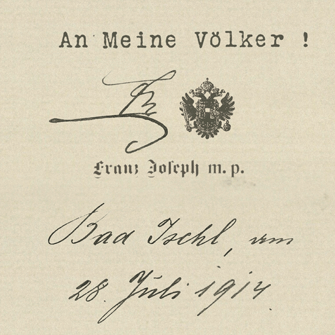 An Meine Völker !
Franz Joseph m. p.
Bad Ischl, am
28. Juli 1914.